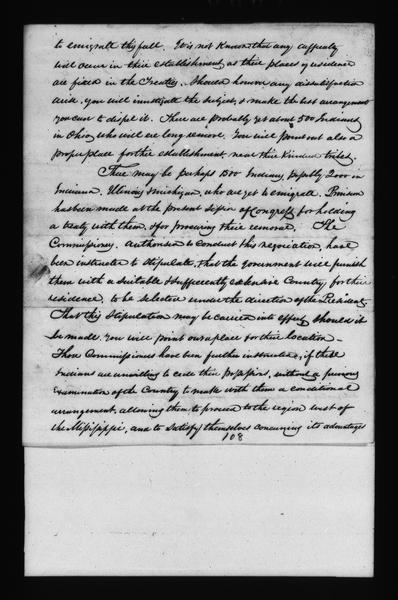 to emigrate this fall. It is not known that any difficulty
will occur in their establishment, as their places of residence
are fixed in the Treaties. Should however any dissatisfaction
arise, you will investigate the subject, & make the best arrangement
you can to dispel it. There are probably yet about 500 Indians
in Ohio, who will ere long remove. You will point out also a
proper place for their establishment, near their kindred tribes.
There may be perhaps 1500 Indians, possibly 2000 in
Indiana, Illinois, & Michigan, who are yet to emigrate. Provision
has been made at the present session of Congress for holding
a treaty with them, & for procuring their removal. The
Commissioners authorised to conduct this negociation, have
been instructed to stipulate, that the government will furnish
them with a suitable & sufficiently extensive Country for their
residence, to be selected under the direction of the President.
That this stipulation may be carried into effect, should it
be made, you will point out a place for their location.
These Commissioners have been further instructed, if these
Indians are unwilling to cede their possessions, without a previous
examination of the Country to make with them a conditional
arrangement, allowing them to proceed to the region west of
the Mississippi, and to satisfy themselves concerning its advantages
108